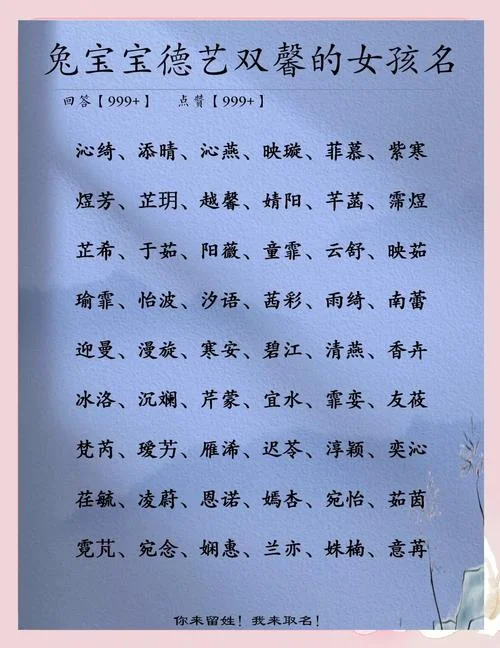 兔宝宝德艺双馨的女孩名
回答【999+】 点赞【999+】
沁绮、添晴、沁燕、映璇、菲慕、紫寒
煜芳、芷玥、越馨、婧阳、芊菡、霈煜
芷希、于茹、阳薇、童霏、云舒、映茹
瑜霏、怡波、汐语、茜彩、雨绮、南蕾
迎曼、漫旋、寒安、碧江、清燕、香卉
冰洛、沉斓、芹蒙、宜水、霏娈、友莜
梵芮、瑷芳、雁浠、迟苓、淳颖、奕沁
荏毓、凌蔚、恩诺、嫣杏、宛怡、茹茵
霓芃、宛念、娴惠、兰亦、姝楠、意苒
你来留姓！我来取名！